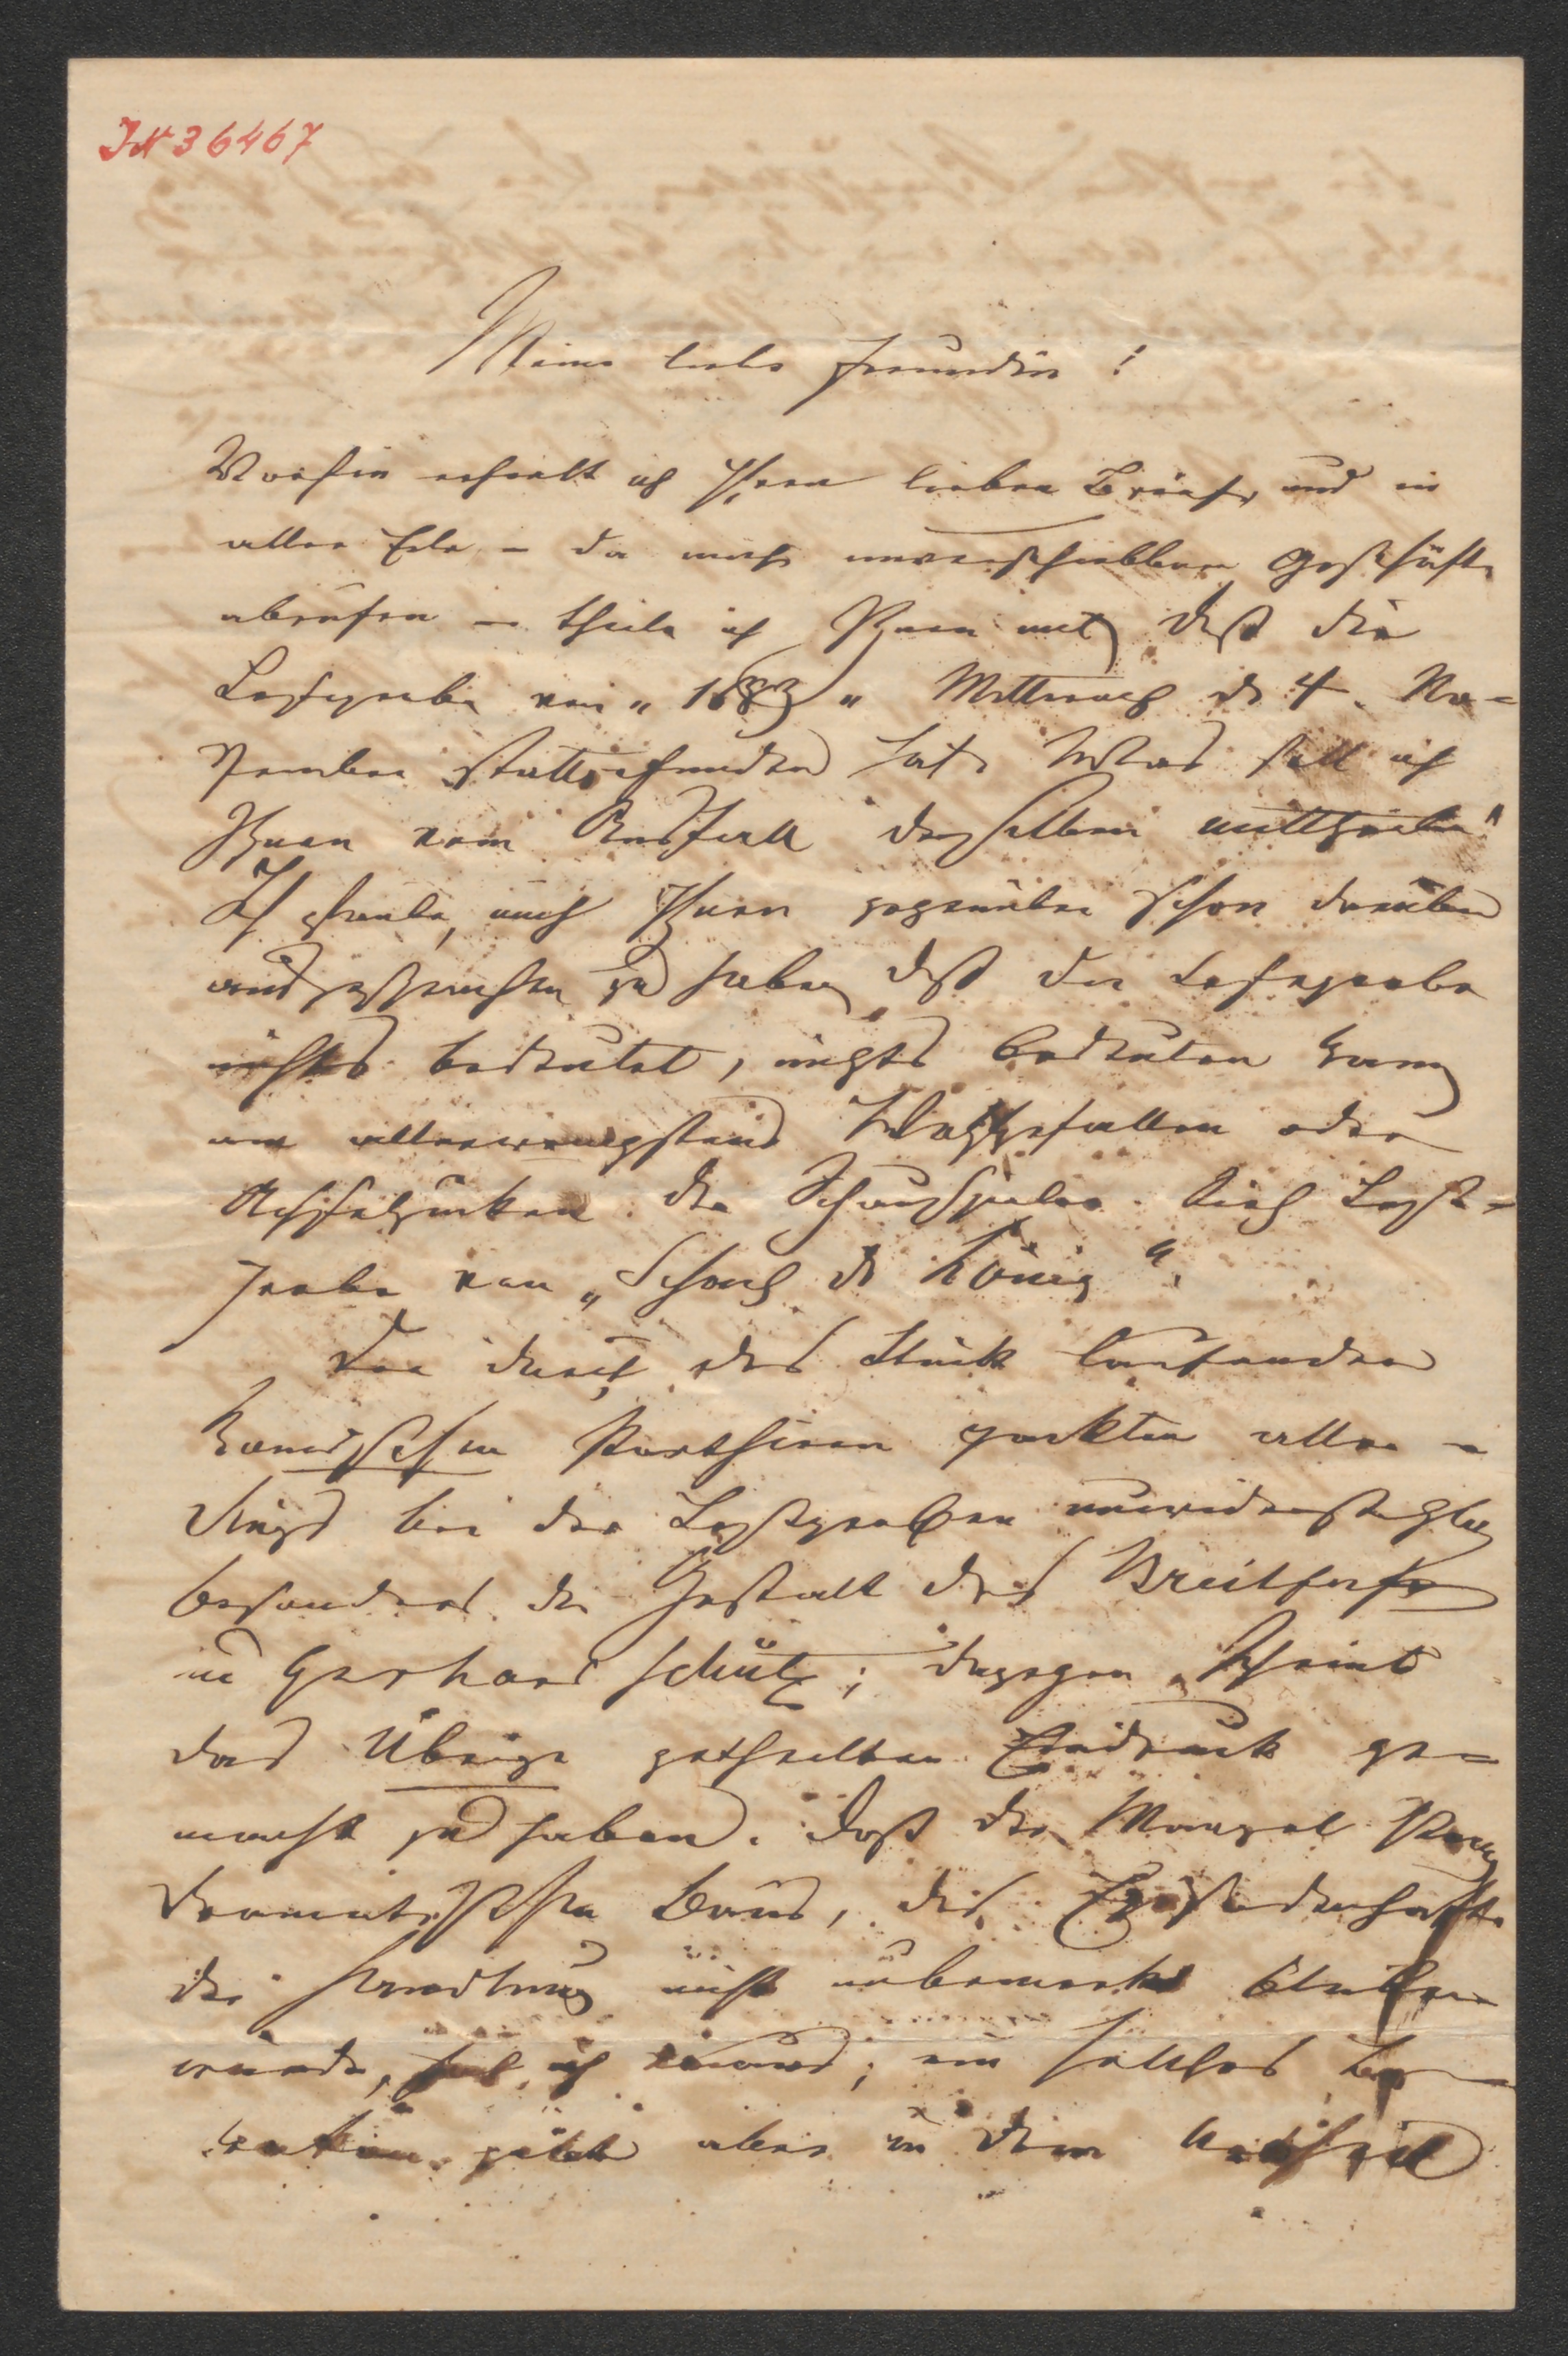 IN 36467
Meine liebe Freundin!
Vorhin erhielt ich Ihren lieben Brief, und in
aller Eile – da mich unverschiebbare Geschäfte
abrufen – theile ich Ihnen mit, daß die
Leseprobe von „1683" Mittwoch d. 4. No-
vember stattgefunden hat. Was soll ich
Ihnen vom Ausfall derselben mittheilen?
Ich glaube, mich Ihnen gegenüber schon darüber
ausgesprochen zu haben, daß die Leseprobe
nichts bedeutet, nichts bedeuten kann,
am allerwenigsten Wohlgefallen oder
Achselzucken der Schauspieler. Sieh Lese-
probe von „Schach d. König".
Die durch das Stück laufenden
komischen Parthieen packten aller-
dings bei der Leseprobe unwiderstehlich,
besonders die Gestalt des
in Gerhard Schütz; dagegen scheint
das Übrige getheilten Eindruck ge-
macht zu haben. Daß der Mangel
dramatischen Baus, das Episodenhafte
der Handlung nicht unbemerkt bleiben
würde, ich; ein solches
aber in dem